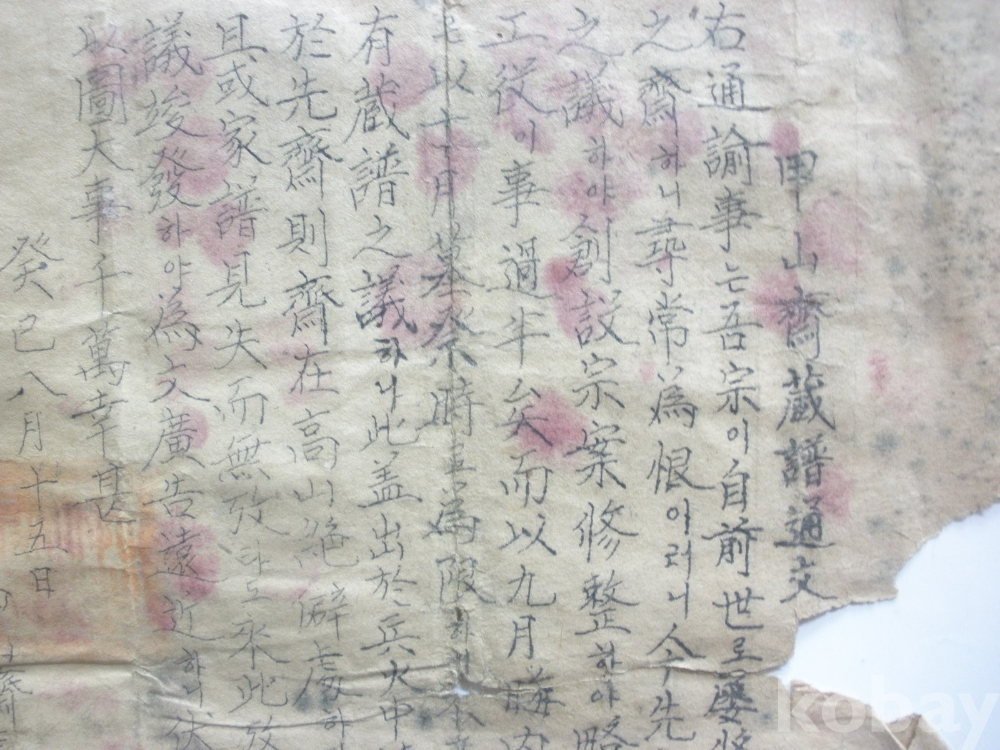 甲山齋蔵譜通文
右通諭事는吾宗이自前世로屡
之齋하니尋常爲恨이러니今先
之議하야創設宗案修整하야略
工役이事過半矣而以九月
以十月墓祭時로爲限
有蔵譜之議하니此盖出於兵火中
於先齋則齋在高山絶僻處하
且或家譜見失而無攷라도來此攷
議竣發하야爲文廣告遠近하니伏
以圖大事千萬幸甚
癸巳八月十五日
齋
kobay